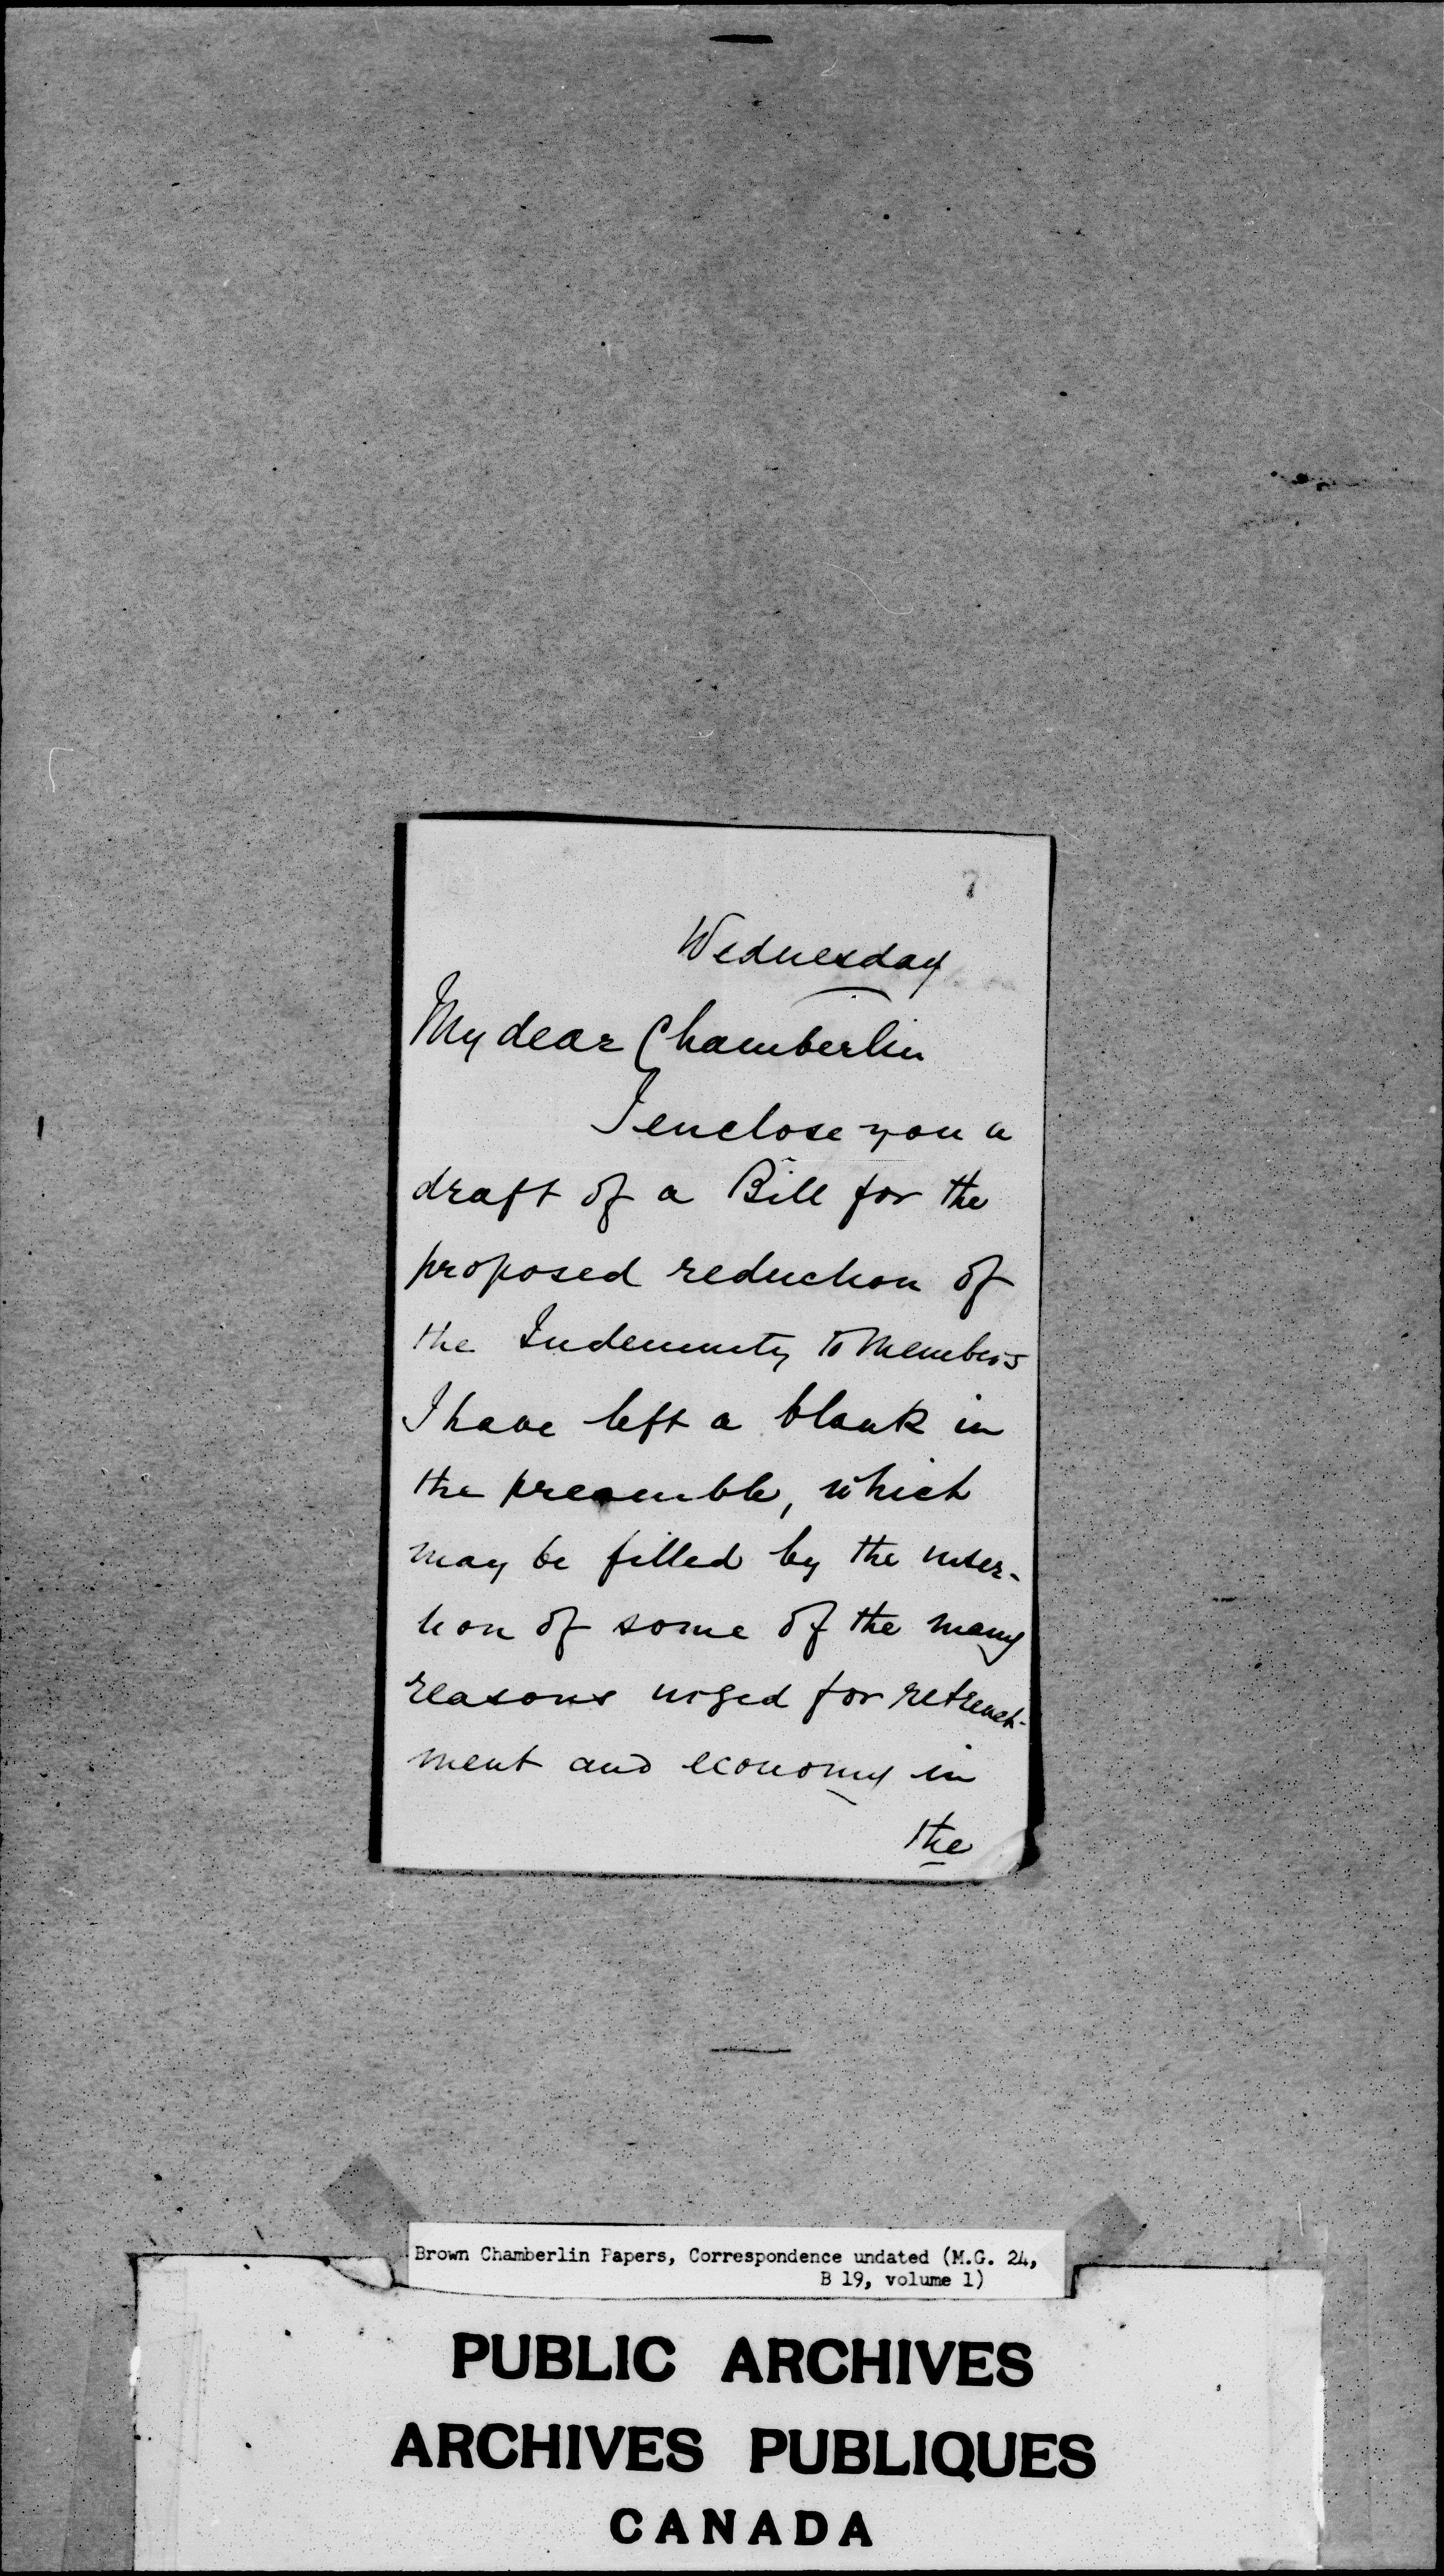 7
Wednesday
My dear Chamberlin
I enclose you a
draft of a Bill for the
proposed reduction of
the Indemnity to Members
I have left a blank in
the preamble, which
may be filled by the inser-
tion of some of the many
reasons urged for retrench-
ment and economy in
the
Brown Chamberlin Papers, Correspondence undated (M.G. 24,
B 19, volume 1)
PUBLIC ARCHIVES
ARCHIVES PUBLIQUES
CANADA